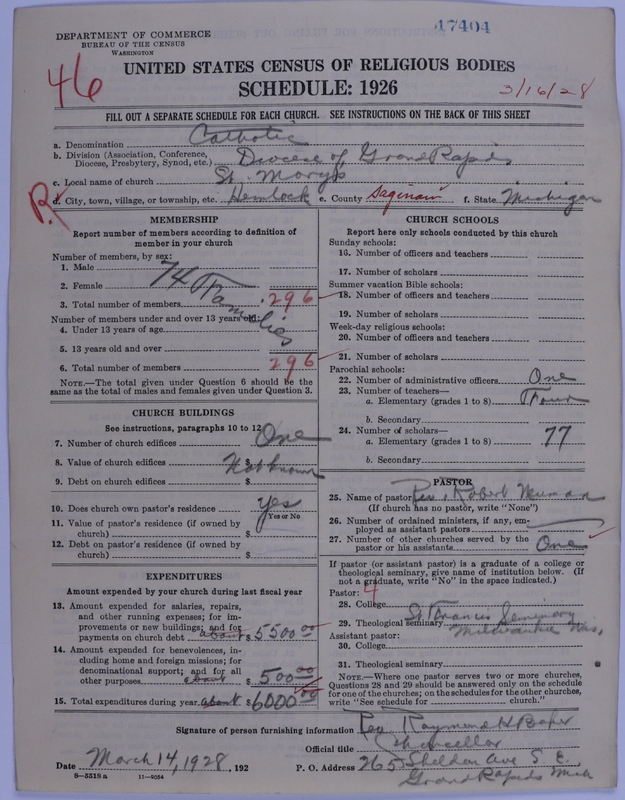 47404
DEPARTMENT OF COMMERCE
BUREAU OF THE CENSUS
WASHINGTON
46
UNITED STATES CENSUS OF RELIGIOUS BODIES
SCHEDULE: 1926
3/16/28
FILL OUT A SEPARATE SCHEDULE FOR EACH CHURCH. SEE INSTRUCTIONS ON THE BACK OF THIS SHEET
a. Denomination Catholic
b. Division (Association, Conference, Diocese, Presbytery, Synod, etc.) Diocese of Grand Rapids
c. Local name of church St. Mary's
R
d. City, town, village, or township, etc. Hemlock e. County Saginaw f. State Michigan
MEMBERSHIP
Report number of members according to definition of
member in your church
Number of members, by sex:
1. Male
74 Families
2. Female
3. Total number of members 296
Number of members under and over 13 years old:
4. Under 13 years of age
5. 13 years old and over
6. Total number of members 296
NOTE.—The total given under Question 6 should be the
same as the total of males and females given under Question 3.
CHURCH BUILDINGS
See instructions, paragraphs 10 to 12
7. Number of church edifices One
8. Value of church edifices $ Not known
9. Debt on church edifices $
10. Does church own pastor's residence Yes
Yes or No
11. Value of pastor's residence (if owned by
church) $
12. Debt on pastor's residence (if owned by
church) $
EXPENDITURES
Amount expended by your church during last fiscal year
13. Amount expended for salaries, repairs,
and other running expenses; for im-
provements or new buildings; and for
payments on church debt about $ 5500 00
14. Amount expended for benevolences, in-
cluding home and foreign missions; for
denominational support; and for all
other purposes about $ 500 00
15. Total expenditures during year about $ 6000 00
CHURCH SCHOOLS
Report here only schools conducted by this church
Sunday schools:
16. Number of officers and teachers
17. Number of scholars
Summer vacation Bible schools:
18. Number of officers and teachers
19. Number of scholars
Week-day religious schools:
20. Number of officers and teachers
21. Number of scholars
Parochial schools:
22. Number of administrative officers One
23. Number of teachers—
a. Elementary (grades 1 to 8) Four
b. Secondary
24. Number of scholars—
a. Elementary (grades 1 to 8) 77
b. Secondary
PASTOR
25. Name of pastor Rev. Robert Neuman
(If church has no pastor, write "None")
26. Number of ordained ministers, if any, em-
ployed as assistant pastors
27. Number of other churches served by the
pastor or his assistants One
If pastor (or assistant pastor) is a graduate of a college or
theological seminary, give name of institution below. (If
not a graduate, write "No" in the space indicated.)
Pastor: 4
28. College
29. Theological seminary St Francis Seminary
Milwaukee Wis.
Assistant pastor:
30. College
31. Theological seminary
NOTE.—Where one pastor serves two or more churches,
Questions 28 and 29 should be answered only on the schedule
for one of the churches; on the schedules for the other churches,
write "See schedule for church."
Signature of person furnishing information Rev Raymond H Baker
Official title Chancellor
Date March 14, 1928, 192 P. O. Address 265 Sheldon Ave S. E.
Grand Rapids Mich
8—5518 a 11—9054